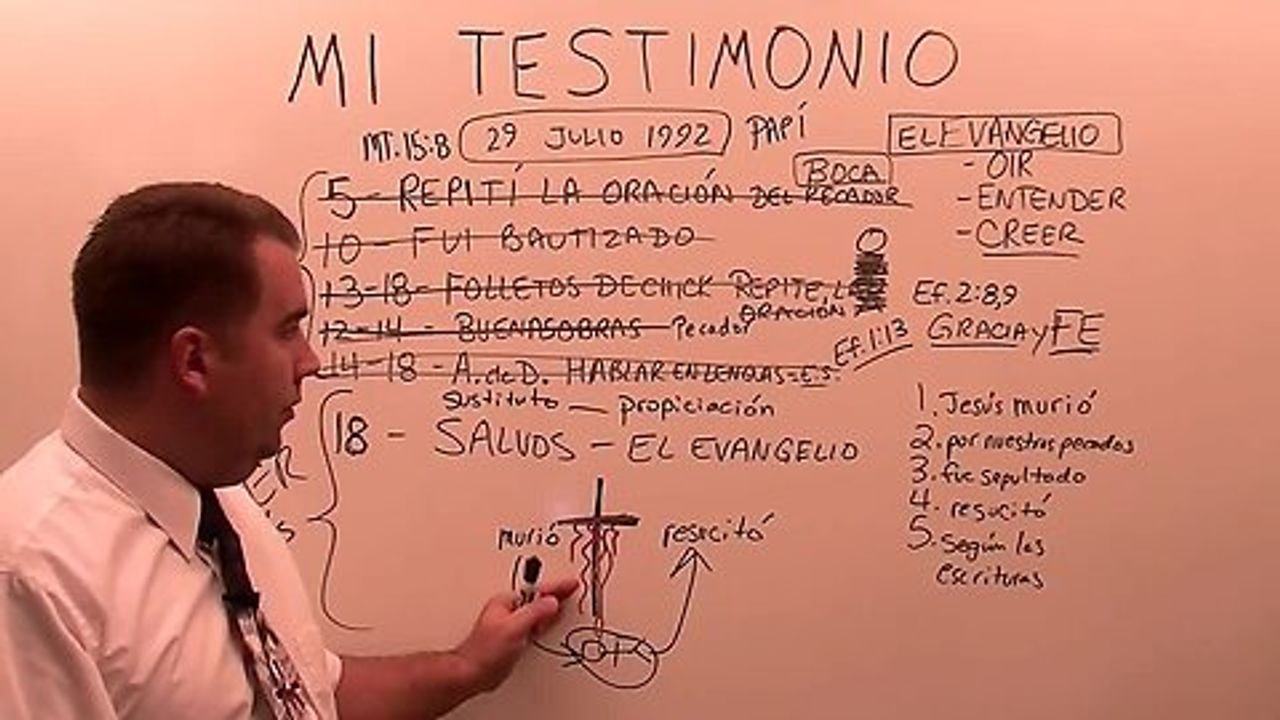 MI TESTIMONIO
MT. 15:8 29 JULIO 1992 PAPÍ
5 - REPITÍ LA ORACIÓN DEL PECADOR
BOCA
10 - FUI BAUTIZADO
13-18 - FOLLETOS DE CHICK REPITE LA
ORACIÓN
12-14 - BUENAS OBRAS Pecador
14-18 - A. de D. HABLAR EN LENGUAS = E.S.
Ef. 1:13
sustituto — propiciación
18 - SALVOS - EL EVANGELIO
murió
resucitó
EL EVANGELIO
- OIR
- ENTENDER
- CREER
Ef. 2:8,9
GRACIA y FE
1. Jesús murió
2. por nuestros pecados
3. fue sepultado
4. resucitó
5. Según las
escrituras